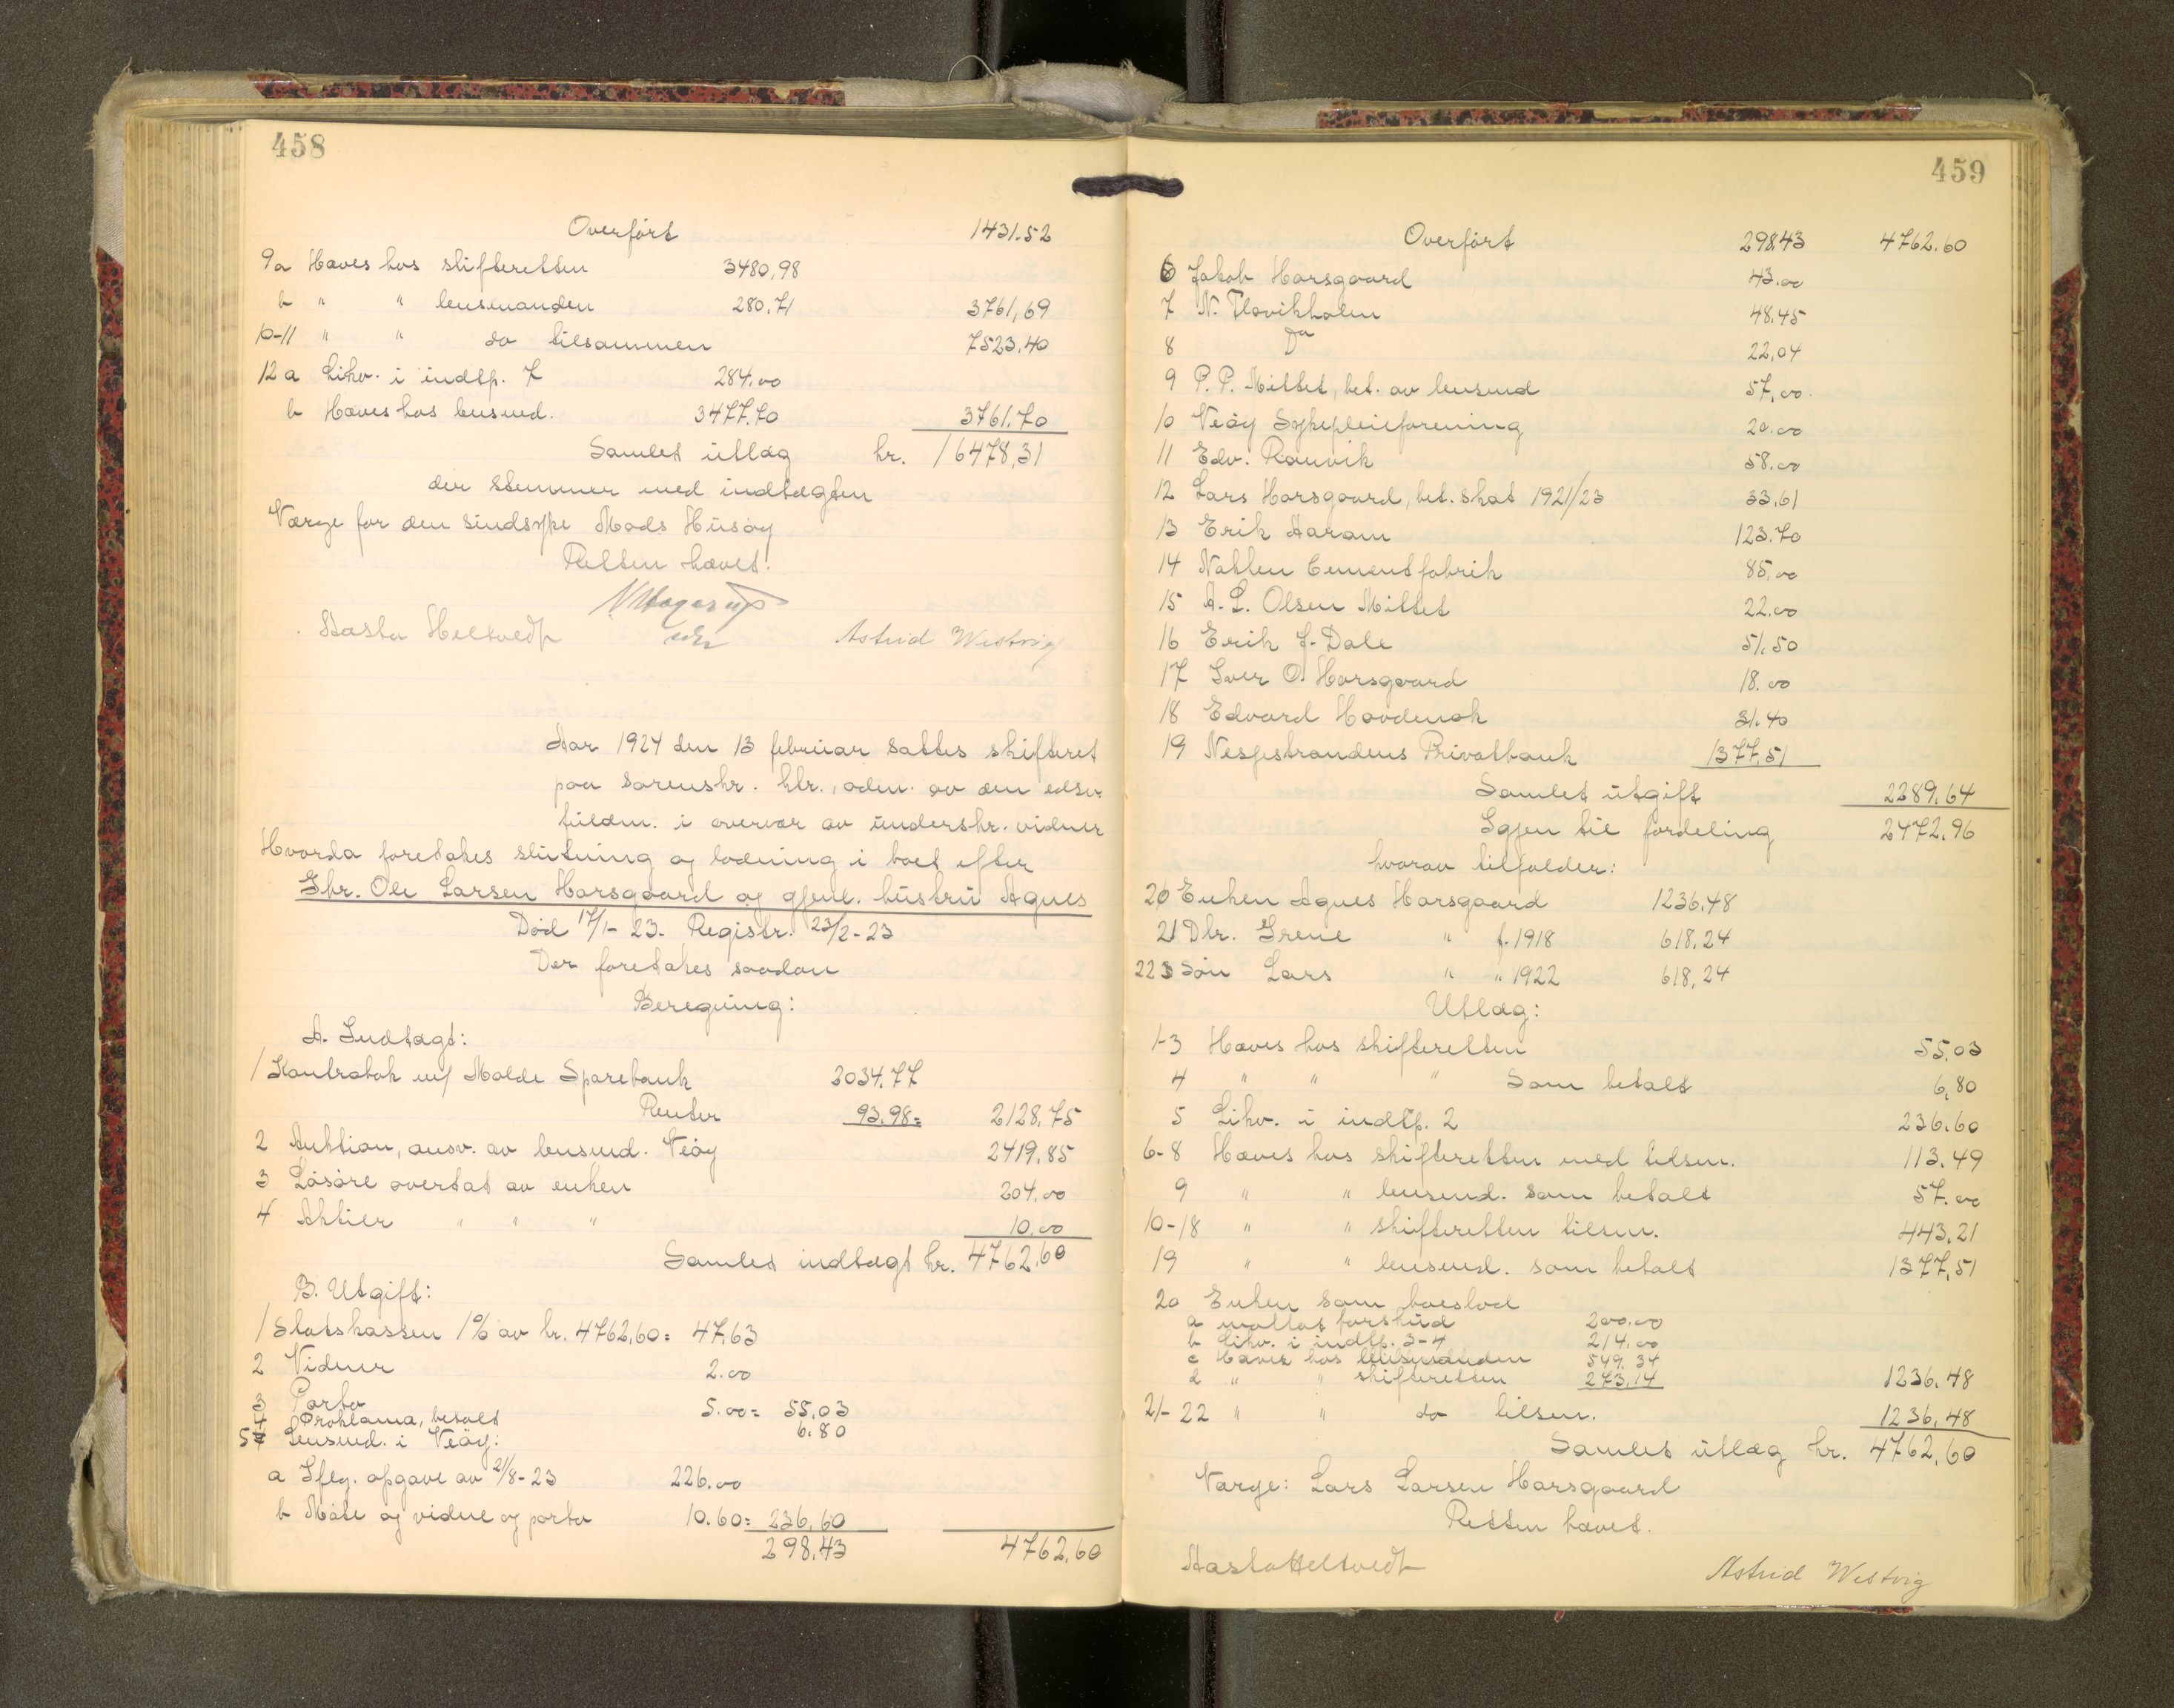 458
Overført 1431.52
9a Haves hos skifteretten 3480,98
b " " lensmanden 280.71 3761,69
10-11 " " do tilsammen 7523,40
12a Likv. i indtp. 7 284.00
b Haves hos lensmd. 3477.70 3761.70
Samlet utlæg kr. 16478,31
der stemmer med indtægten
Værge for den sindsyke Mads Husøy
Retten hævet.
N Hagerup
Aasta Heltvedt Astrid Westvig
Aar 1924 den 13 februar sattes skifteret
paa sorenskr. ktr., adm. av den edsv.
fuldm. i overvær av underskr. vidner
Hvorda foretakes slutning og lodning i boet efter
Gbr. Ole Larsen Horsgaard og gjenl. hustru Agnes
Død 17/1-23. Registr. 23/2-23
Der foretakes saadan
Beregning:
A. Indtægt:
1 Kontrabok m/ Molde Sparebank 2034.77
Renter 93.98= 2128,75
2 Auktion, ansv. av lensmd. Veøy 2419,85
3 Løsøre overtat av enken 204,00
4 Aktier " " " 10,00
Samlet indtægt kr. 4762,60
B. Utgift:
1 Statskassen 1% av kr. 4762,60= 47,63
2 Vidner 2.00
3 Porto 5.00= 55,03
4 Proklama, betalt 6.80
5 Lensmd. i Veøy:
a Iflg. opgave av 21/8-23 226.00
b Møte og vidne og porto 10.60= 236,60
298,43 4762,60
459
Overført 298.43 4762.60
6 Jakob Horsgaard 43.00
7 N. Flovikholm 48.45
8 Do 22,04
9 P. P. Mittet, bet. av lensmd 57,00
10 Veøy Sykepleieforening 20.00
11 Edv. Rouvik 58.00
12 Lars Horsgaard, bet. skat 1921/23 33.61
13 Erik Aaram 123.70
14 Nakken Cementfabrik 85,00
15 A. L. Olsen Mittet 22.00
16 Erik J. Dale 51.50
17 Iver O. Horsgaard 18.00
18 Edvard Hovdenak 31.40
19 Nesjestrandens Privatbank 1377,51
Samlet utgift 2289.64
Igjen til fordeling 2472.96
hvorav tilfalder:
20 Enken Agnes Horsgaard 1236.48
21 Dtr. Irene " f. 1918 618,24
22 Søn Lars " " 1922 618,24
Utlæg:
1-3 Haves hos skifteretten 55,03
4 " " " som betalt 6,80
5 Likv. i indtp. 2 236.60
6-8 Haves hos skifteretten med tilsm. 113.49
9 " " lensmd. som betalt 57.00
10-18 " " skifteretten tilsm. 443,21
19 " " lensmd. som betalt 1377,51
20 Enken som boeslod
a mottat forskud 200.00
b Likv. i indtp. 3-4 214.00
c Haves hos lensmanden 549.34
d " " skifteretten 273,14 1236,48
21-22 " " do tilsm. 1236,48
Samlet utlæg kr. 4762,60
Værge: Lars Larsen Horsgaard
Retten hævet.
Aasta Heltvedt Astrid Westvig